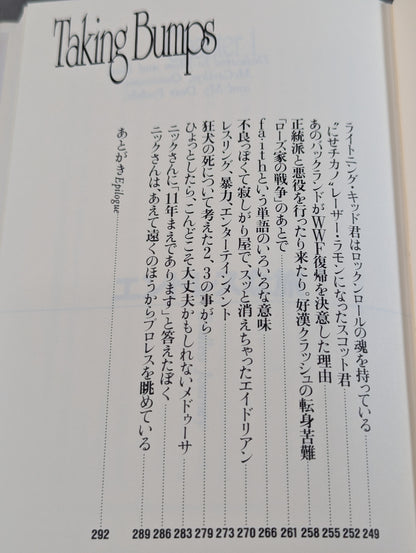 Taking Bumps
ライトニング・キッド君はロックンロールの魂を持っている 249
“にせチカノ”レーザー・ラモンになったスコット君 252
あのバックランドがWWF復帰を決意した理由 255
正統派と悪役を行ったり来たり。好漢クラッシュの転身苦難 258
「ローズ家の戦争」のあとで 261
faithという単語のいろいろな意味 266
不良っぽくて寂しがり屋で、スッと消えちゃったエイドリアン 270
レスリング、暴力、エンターテインメント 273
狂犬の死について考えた2、3の事がら 279
ひょっとしたら、こんどこそ大丈夫かもしれないメドゥーサ 283
ニックさんに「11年まえであります」と答えたぼく 286
ニックさんは、あえて遠くのほうからプロレスを眺めている 289
あとがきEpilogue 292